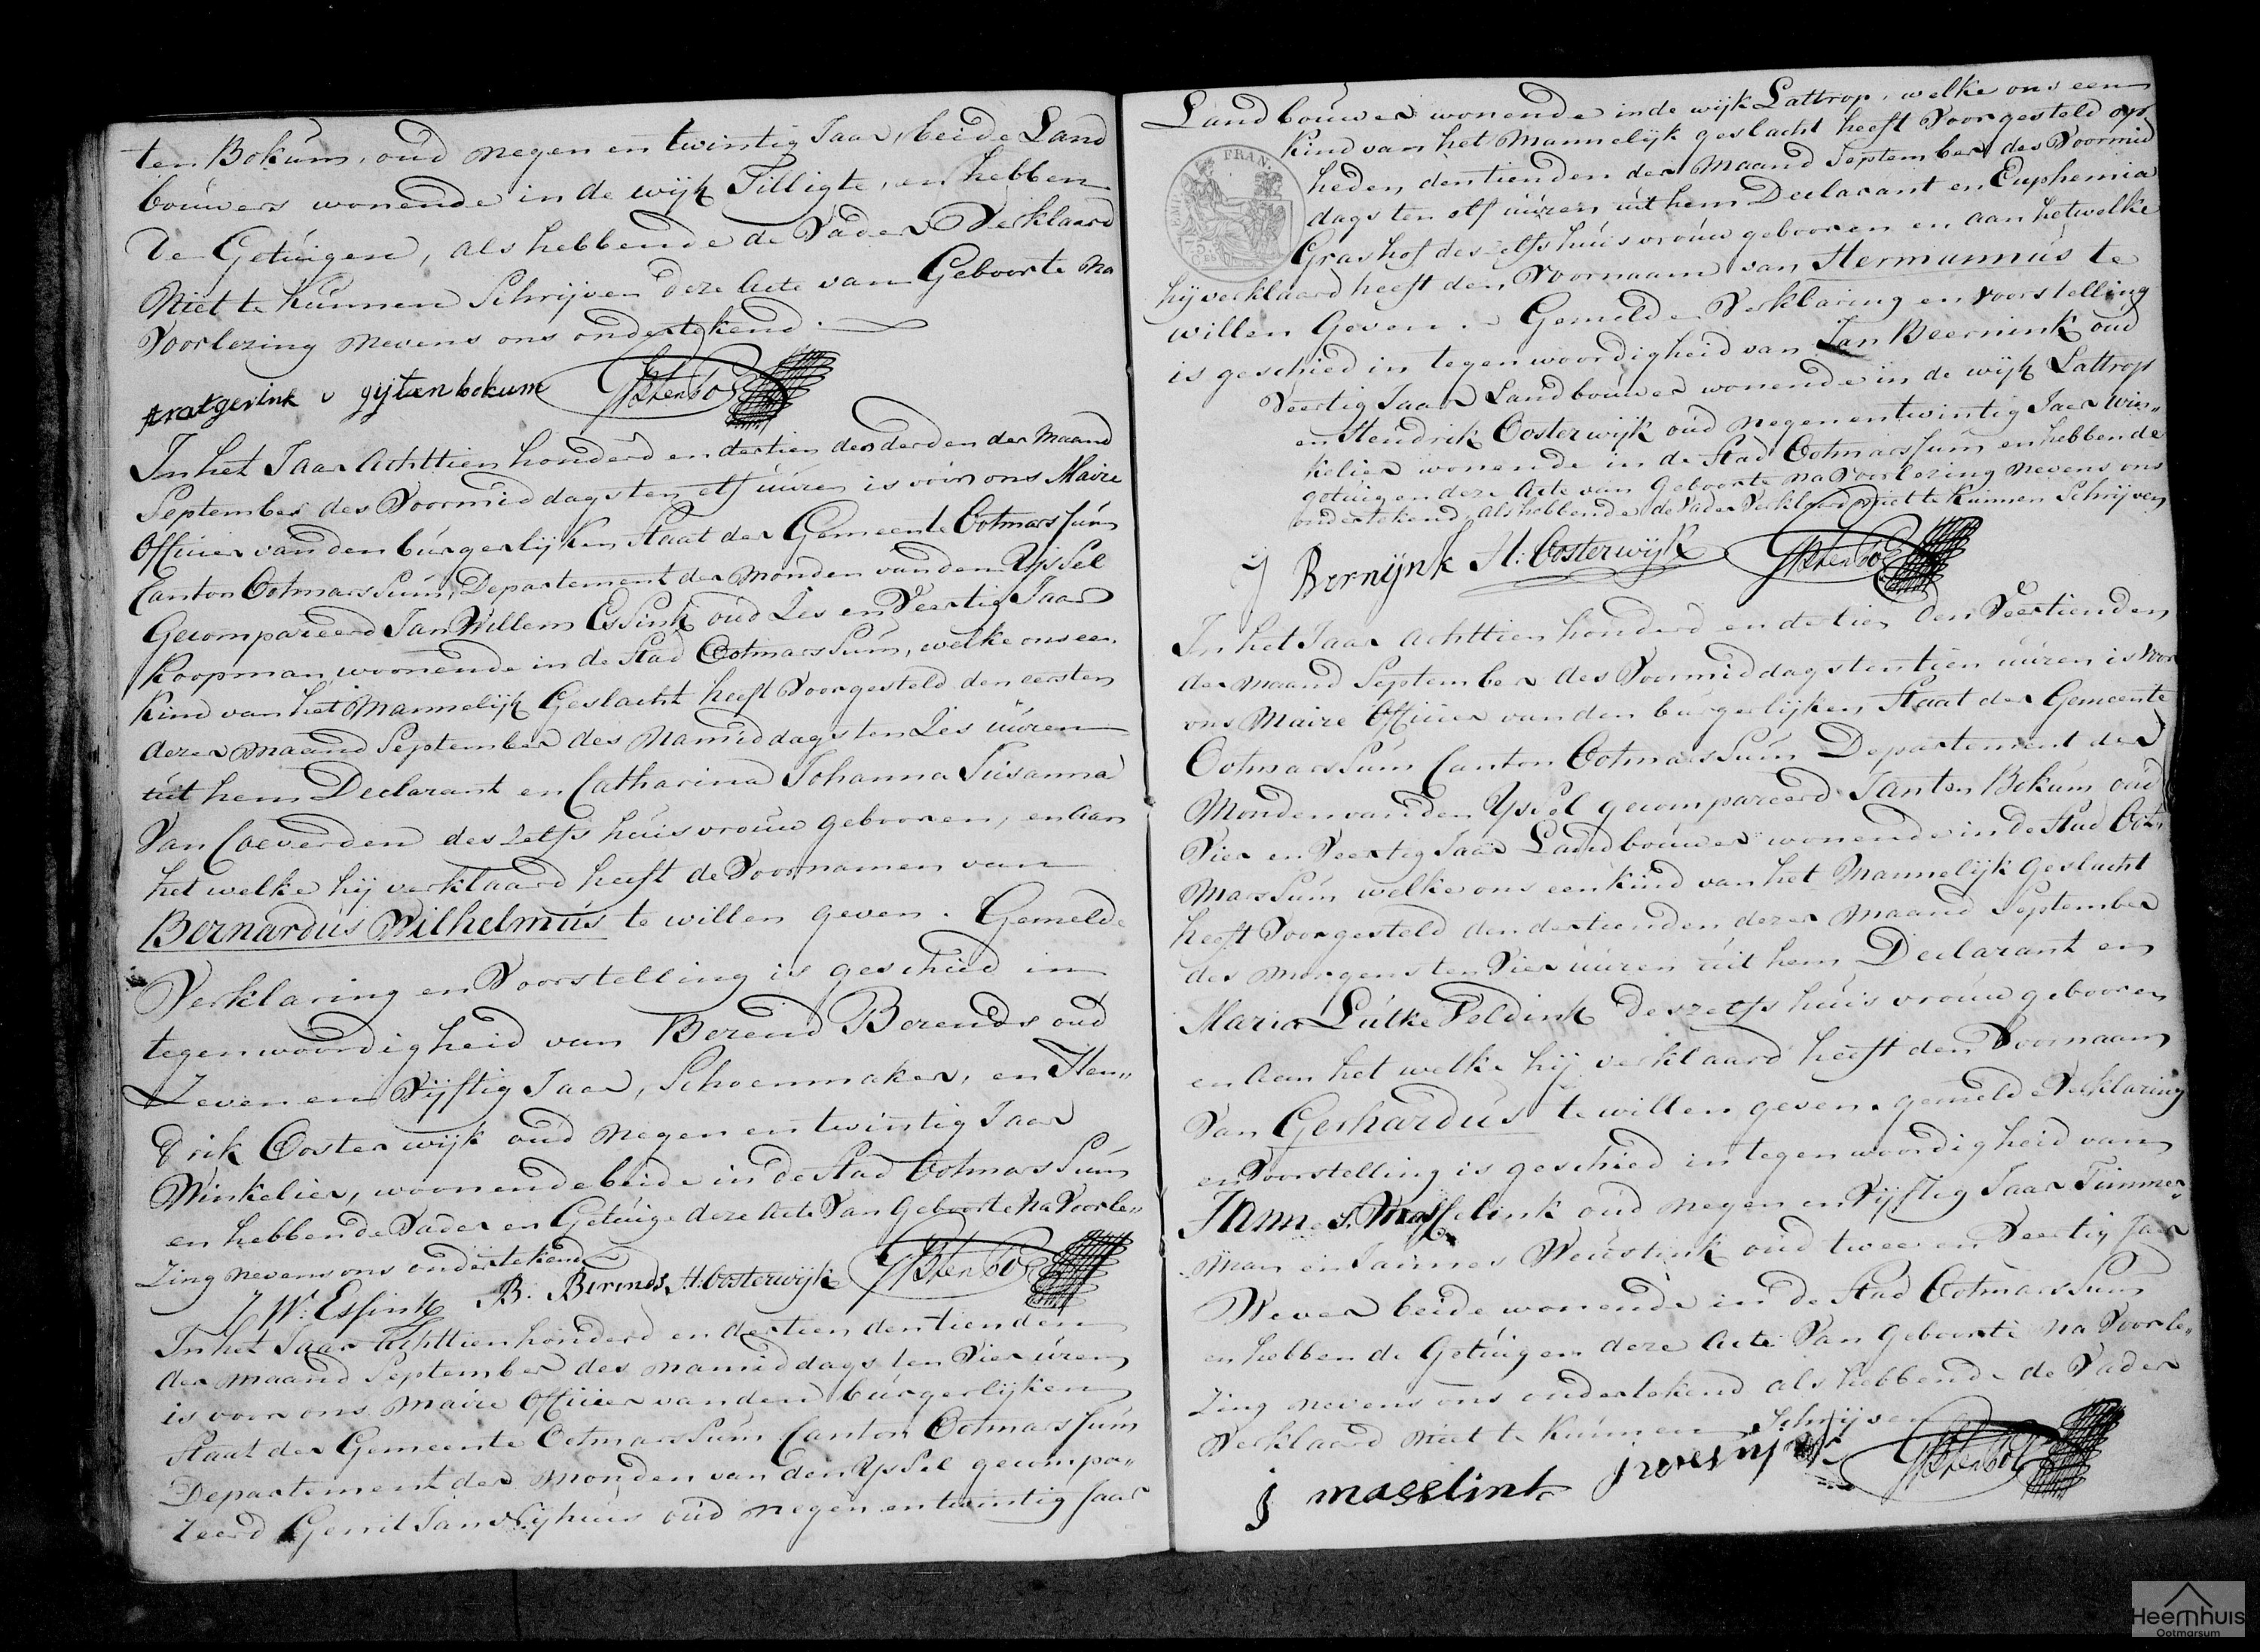 ten Bokum, oud negen en twintig Jaar, beide Land
bouwers wonende in de wijk Tilligte, en hebben
de Getuigen, als hebbende de Vader Verklaard
Niet te kunnen Schrijven deze Acte van Geboorte na
Voorlezing nevens ons ondertekend.
gijtenbokum
In het Jaar Achttien honderd en dertien den derden der Maand
September des Voormiddags ten elf uuren is voor ons Maire
Officier van den burgerlijken Staat der Gemeente Ootmarssum
Canton Ootmarssum, Departement der Monden van den Yssel
Gecompareerd Jan Willem Essink oud Zes en Veertig Jaar
Koopman, woonende in de Stad Ootmarssum, welke ons een
kind van het Mannelijk Geslacht heeft Voorgesteld den eersten
dezer maand September des Namiddags ten Zes uuren
uit hem Declarant en Catharina Johanna Susanna
Van Coeverden deszelfs huisvrouw gebooren, en aan
het welke hij verklaard heeft de Voornamen van
Bernardus Wilhelmus te willen geven. Gemelde
Verklaring en Voorstelling is geschied in
tegenwoordigheid van Berend Berends oud
Zeven en Vijftig Jaar, Schoenmaker, en Hen„
drik Oosterwijk oud Negen en twintig Jaar
Winkelier, woonende beide in de Stad Ootmarssum
en hebbende Vader en Getuige deze Acte Van Geboorte Na Voorle„
zing nevens ons ondertekend
J W. Essink B. Berends H: Oosterwijk
In het Jaar Achttien honderd en dertien den tienden
der maand September des namiddags ten Vier uren
is voor ons Maire Officier van den burgerlijken
Staat der Gemeente Ootmarssum Canton Ootmarssum
Departement der Monden van den Yssel gecompa„
reerd Gerrit Jan Nijhuis oud negen en twintig Jaar
Landbouwer wonende in de wijk Lattrop, welke ons een
kind van het Mannelijk geslacht heeft Voorgesteld op
heden, den tienden der Maand September des Voormid
FRAN.
dags ten elf uuren uit hem Declarant en Euphemia
Grashof deszelfs huisvrouw gebooren en aan hetwelke
hij verklaard heeft den Voornaam van Hermannus te
willen Geven. Gemelde Verklaring en voorstelling
is geschied in tegenwoordigheid van Jan Beernink oud
Veertig Jaar Landbouwer wonende in de wijk Lattrop
en Hendrik Oosterwijk oud negen en twintig Jaar Win„
kelier wonende in de Stad Ootmarssum en hebbende
getuigen deze Acte van Geboorte na Voorlezing nevens ons
ondertekend, als hebbende de Vader Verklaard Niet te kunnen Schrijven
J Bernijnk H: Oosterwijk
In het Jaar Achttien honderd en dertien den Veertienden
der maand September des Voormiddags ten tien uuren is voor
ons Maire Officier van den burgerlijken Staat der Gemeente
Ootmarssum Canton Ootmarssum Departement der
Monden van den Yssel gecompareerd Jan ten Bokum oud
Vier en Veertig Jaar Landbouwer wonende in de Stad Oot
Marssum welke ons een kind van het Mannelijk geslacht
heeft Voorgesteld den dertienden dezer Maand September
des morgens ten Vier uuren uit hem Declarant en
Maria Lutke Veldink deszelfs huisvrouw gebooren
en aan het welke hij verklaard heeft den Voornaam
Van Gerhardus te willen geven. gemelde Verklaring
en Voorstelling is geschied in tegenwoordigheid van
Jannes Masselink oud negen en Vijftig Jaar Timmer„
man en Jannes oud twee en Veertig Jaar
Wever beide wonende in de Stad Ootmarssum
en hebben de Getuigen deze Acte Van geboorte na Voorle„
zing nevens ons ondertekend als hebbende de Vader
Verklaard niet te kunnen Schrijven
J masslink
Heemhuis
Ootmarsum